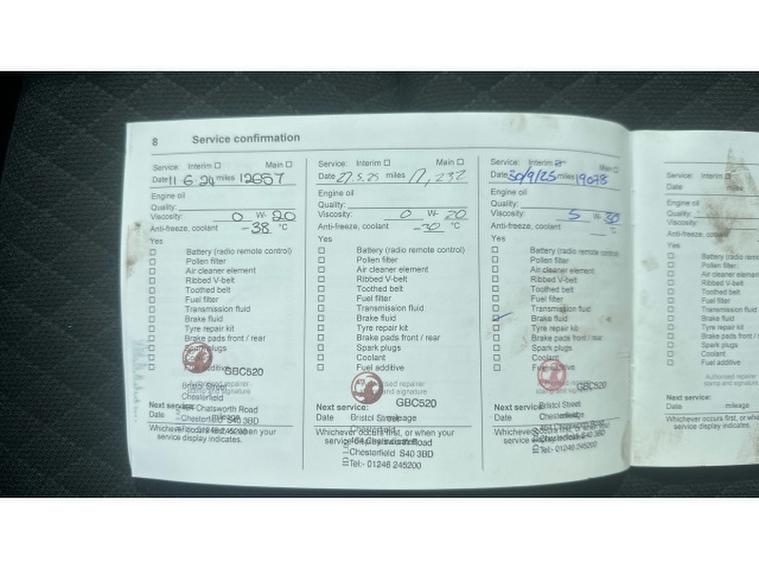 8 Service confirmation
Service: Interim ☐ Main ☐
Date 11 6 24 miles 12657
Engine oil
Quality:
Viscosity: 0 W- 20
Anti-freeze, coolant -38 °C
Yes
☐ Battery (radio remote control)
☐ Pollen filter
☐ Air cleaner element
☐ Ribbed V-belt
☐ Toothed belt
☐ Fuel filter
☐ Transmission fluid
☐ Brake fluid
☐ Tyre repair kit
☐ Brake pads front / rear
☐ Spark plugs
☐
☐ additive
GBC520
Authorised repairer
stamp and signature
Bristol Street
Next service:
Date mileage
464 Chatsworth Road
Chesterfield S40 3BD
Whichever occurs first, or when your
service display indicates.
Service: Interim ☐ Main ☐
Date 27.5.25 miles 17,232
Engine oil
Quality:
Viscosity: 0 W- 20
Anti-freeze, coolant -30 °C
Yes
☐ Battery (radio remote control)
☐ Pollen filter
☐ Air cleaner element
☐ Ribbed V-belt
☐ Toothed belt
☐ Fuel filter
☐ Transmission fluid
☐ Brake fluid
☐ Tyre repair kit
☐ Brake pads front / rear
☐ Spark plugs
☐ Coolant
☐ Fuel additive
Authorised repairer
stamp and signature
GBC520
Next service:
Date mileage
Bristol Street
Chesterfield
Whichever occurs first, or when your
service display indicates.
464 Chatsworth Road
Chesterfield S40 3BD
Tel:- 01246 245200
Service: Interim ☑ Main ☐
Date 30/9/25 miles 19078
Engine oil
Quality:
Viscosity: 5 W- 30
Anti-freeze, coolant °C
Yes
☐ Battery (radio remote control)
☐ Pollen filter
☐ Air cleaner element
☐ Ribbed V-belt
☐ Toothed belt
☐ Fuel filter
☐ Transmission fluid
☑ Brake fluid
☐ Tyre repair kit
☐ Brake pads front / rear
☐ Spark plugs
☐ Coolant
☐ Fuel additive
Authorised repairer
stamp and signature
GBC520
Next service:
Date mileage
Bristol Street
Whichever occurs first, or when your
service display indicates.
464 Chatsworth Road
Chesterfield S40 3BD
Tel:- 01246 245200
Service: Interim ☐
Date miles
Engine oil
Quality:
Viscosity:
Anti-freeze, coolant
Yes
☐ Battery (radio remote
☐ Pollen filter
☐ Air cleaner element
☐ Ribbed V-belt
☐ Toothed belt
☐ Fuel filter
☐ Transmission fluid
☐ Brake fluid
☐ Tyre repair kit
☐ Brake pads
☐ Spark plugs
☐ Coolant
☐ Fuel additive
Authorised repairer
stamp and signature
Next service:
Date mileage
Whichever occurs first, or when
service display indicates.